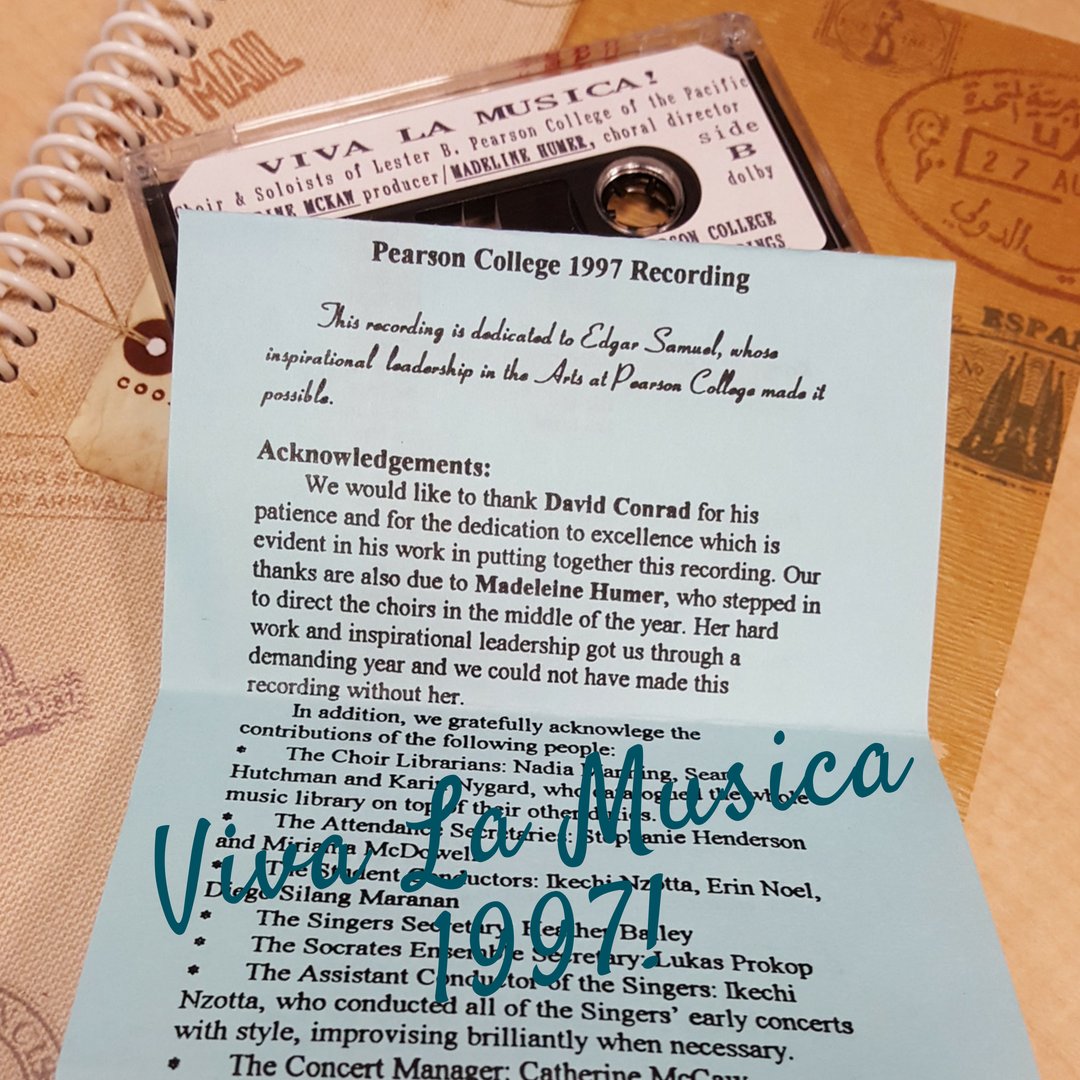 AIR MAIL
VIVA LA MUSICA!
Choir & Soloists of Lester B. Pearson College of the Pacific
MCKAW producer/MADELINE HUMER, choral director
side
B
dolby
COLLEGE
Pearson College 1997 Recording
This recording is dedicated to Edgar Samuel, whose
inspirational leadership in the Arts at Pearson College made it
possible.
Acknowledgements:
We would like to thank David Conrad for his
patience and for the dedication to excellence which is
evident in his work in putting together this recording. Our
thanks are also due to Madeleine Humer, who stepped in
to direct the choirs in the middle of the year. Her hard
work and inspirational leadership got us through a
demanding year and we could not have made this
recording without her.
In addition, we gratefully acknowlege the
contributions of the following people:
* The Choir Librarians: Nadia Sean
Hutchman and Karin Nygard, who catalogued the whole
music library on top of their other duties.
* The Attendance Secretaries: Stephanie Henderson
and Miriama McDowell
* The Student Conductors: Ikechi Nzotta, Erin Noel,
Diego Silang Maranan
* The Singers Secretary: Heather Bailey
* The Socrates Ensemble Secretary: Lukas Prokop
* The Assistant Conductor of the Singers: Ikechi
Nzotta, who conducted all of the Singers' early concerts
with style, improvising brilliantly when necessary.
* The Concert Manager: Catherine McCaw
Viva La Musica
1997!
27 AU
الدولي
ESPAÑ
Nº
COO